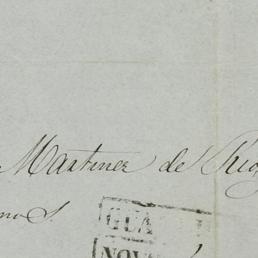 Martinez de Rio
mos.
GUA
NOV